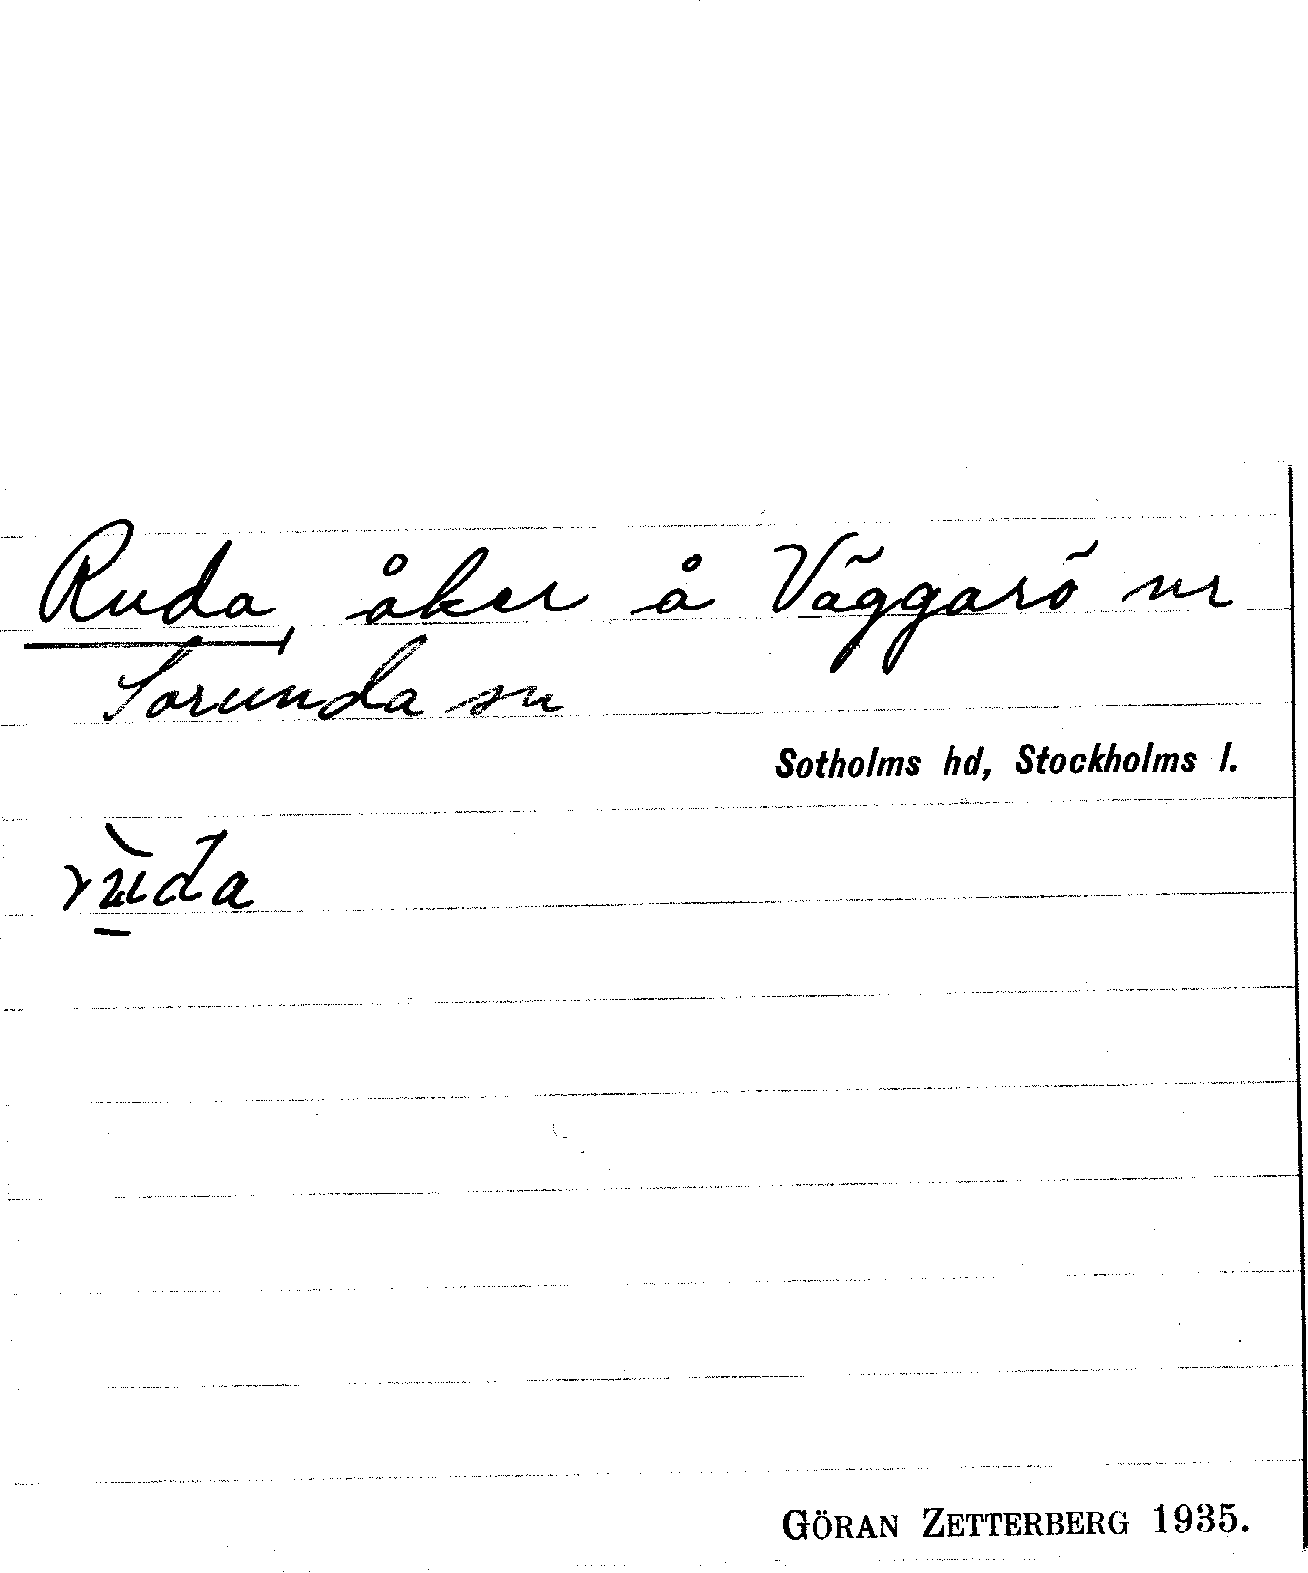 Ruda, åker å Väggarö nr
Sorunda sn
Sotholms hd, Stockholms l.
rùda
GÖRAN ZETTERBERG 1935.